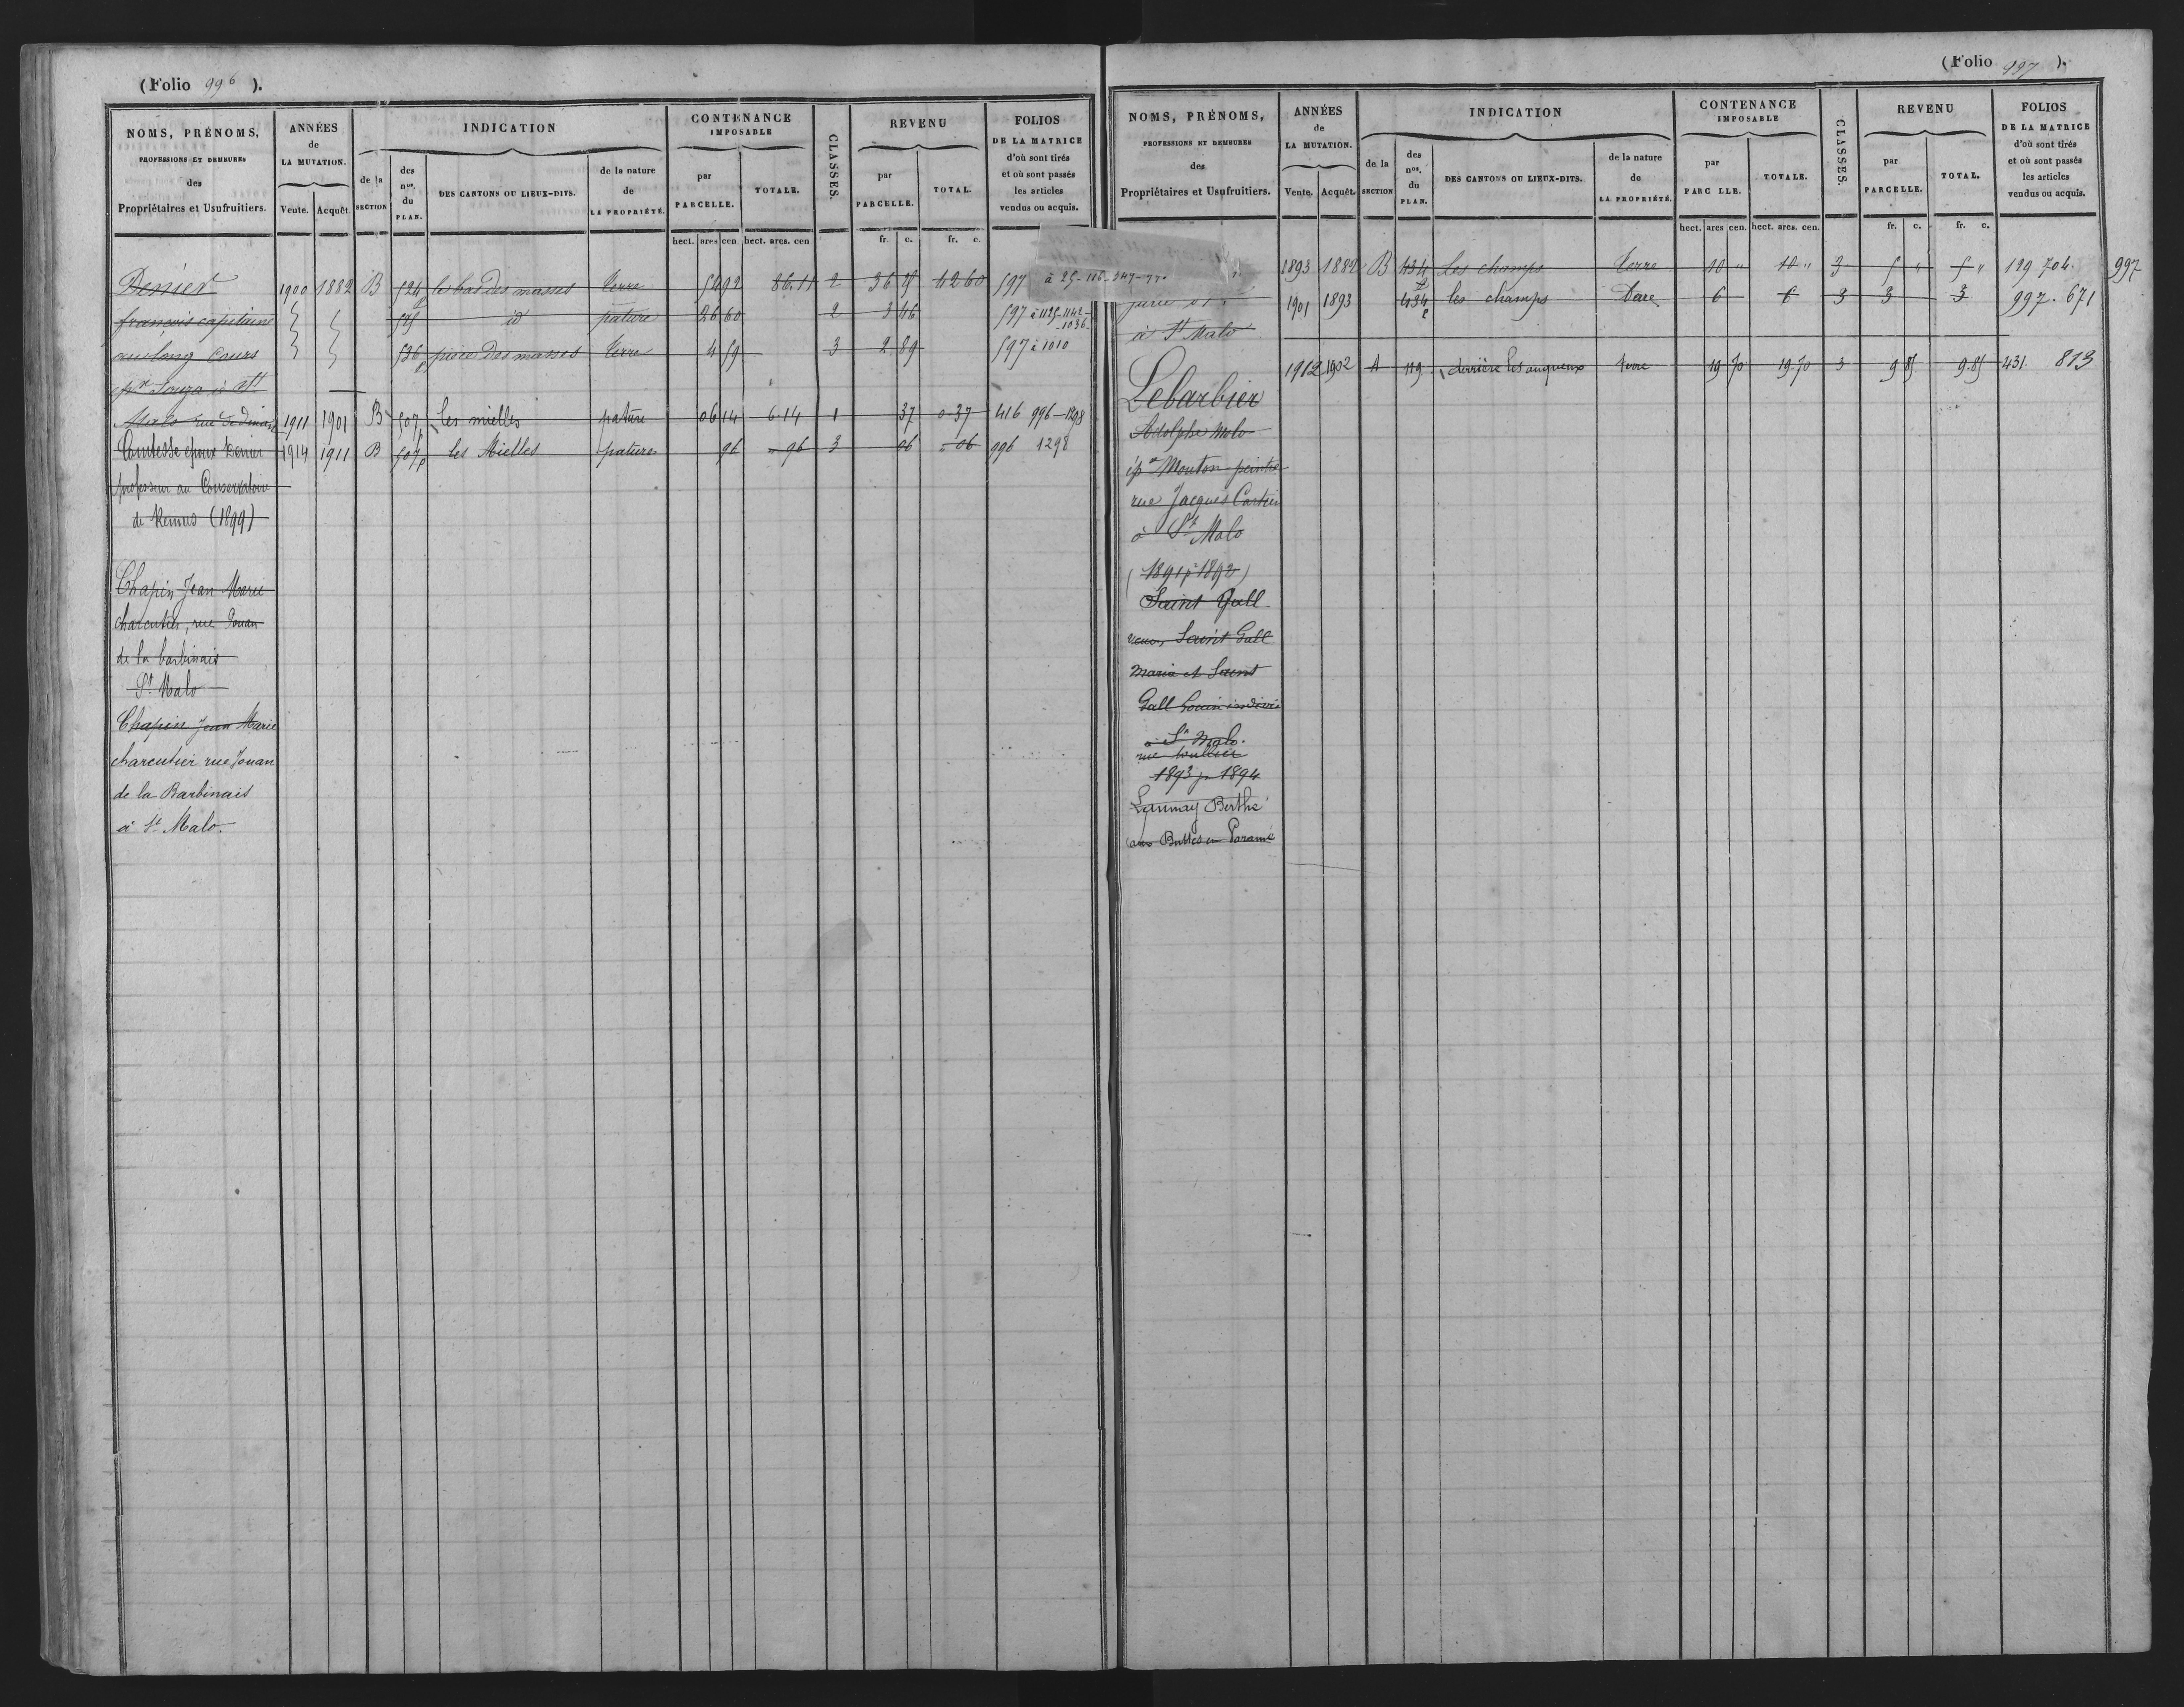 (Folio 996 ).
NOMS, PRÉNOMS,
PROFESSIONS ET DEMEURES
des
Propriétaires et Usufruitiers.
ANNÉES
de
LA MUTATION.
Vente. Acquêt.
INDICATION
de la SECTION
des nos. du PLAN.
DES CANTONS OU LIEUX-DITS.
de la nature de LA PROPRIÉTÉ.
CONTENANCE
IMPOSABLE
par PARCELLE.
TOTALE.
CLASSES.
REVENU
par PARCELLE.
TOTAL.
FOLIOS
DE LA MATRICE
d'où sont tirés
et où sont passés
les articles
vendus ou acquis.
hect. ares cen. hect. ares. cen. fr. c. fr. c.
1900 1882 B 524 les bas des masses terre 54 92 86.11 2 36 25 42 60 597 à 25-116-347-770
françois capitaine 525 id pature 26 60 2 3 46 597 à 1125-1142-1036
au long cours 536 p pièce des masses terre 4 59 3 2 89 597 à 1010
Malo rue de dinan 1911 1901 B 507 p Les mielles pature 06 14 6.14 1 37 0.37 416 996-1298
1914 1911 B 507 p les Mielles pature 96 " 96 3 06 " 06 996 1298
professeur au Conservatoire
de Rennes (1899)
Chapin Jean Marie
charcutier, rue Jouan
de la barbinais
St Malo
Chapin Jean Marie
charcutier rue Jouan
de la Barbinais
à St. Malo.
(Folio 997 ).
NOMS, PRÉNOMS,
PROFESSIONS ET DEMEURES
des
Propriétaires et Usufruitiers.
ANNÉES
de
LA MUTATION.
Vente. Acquêt.
INDICATION
de la SECTION
des nos. du PLAN.
DES CANTONS OU LIEUX-DITS.
de la nature de LA PROPRIÉTÉ.
CONTENANCE
IMPOSABLE
par PARC LLE.
TOTALE.
CLASSES.
REVENU
par PARCELLE.
TOTAL.
FOLIOS
DE LA MATRICE
d'où sont tirés
et où sont passés
les articles
vendus ou acquis.
hect. ares cen. hect. ares. cen. fr. c. fr. c.
1893 1882 B 434 p Les champs terre 10 " 10 " 3 5 " 5 " 129 704. 997
1901 1893 434 p les champs 6 6 3 3 3 997. 671
à St Malo
1912 1902 A 119 derrière les terre 19 70 19.70 3 9 85 9.85 431. 813
Lebarbier
Adolphe Malo
ép. Mouton peintre
rue Jacques Cartier
à St Malo
(1891 pr 1892)
Saint Gall
Saint Gall
Maria et Saint
Gall Louis indivis
à St Malo.
1893 pr 1894
Launay Berthe
aux Buttes en Paramé